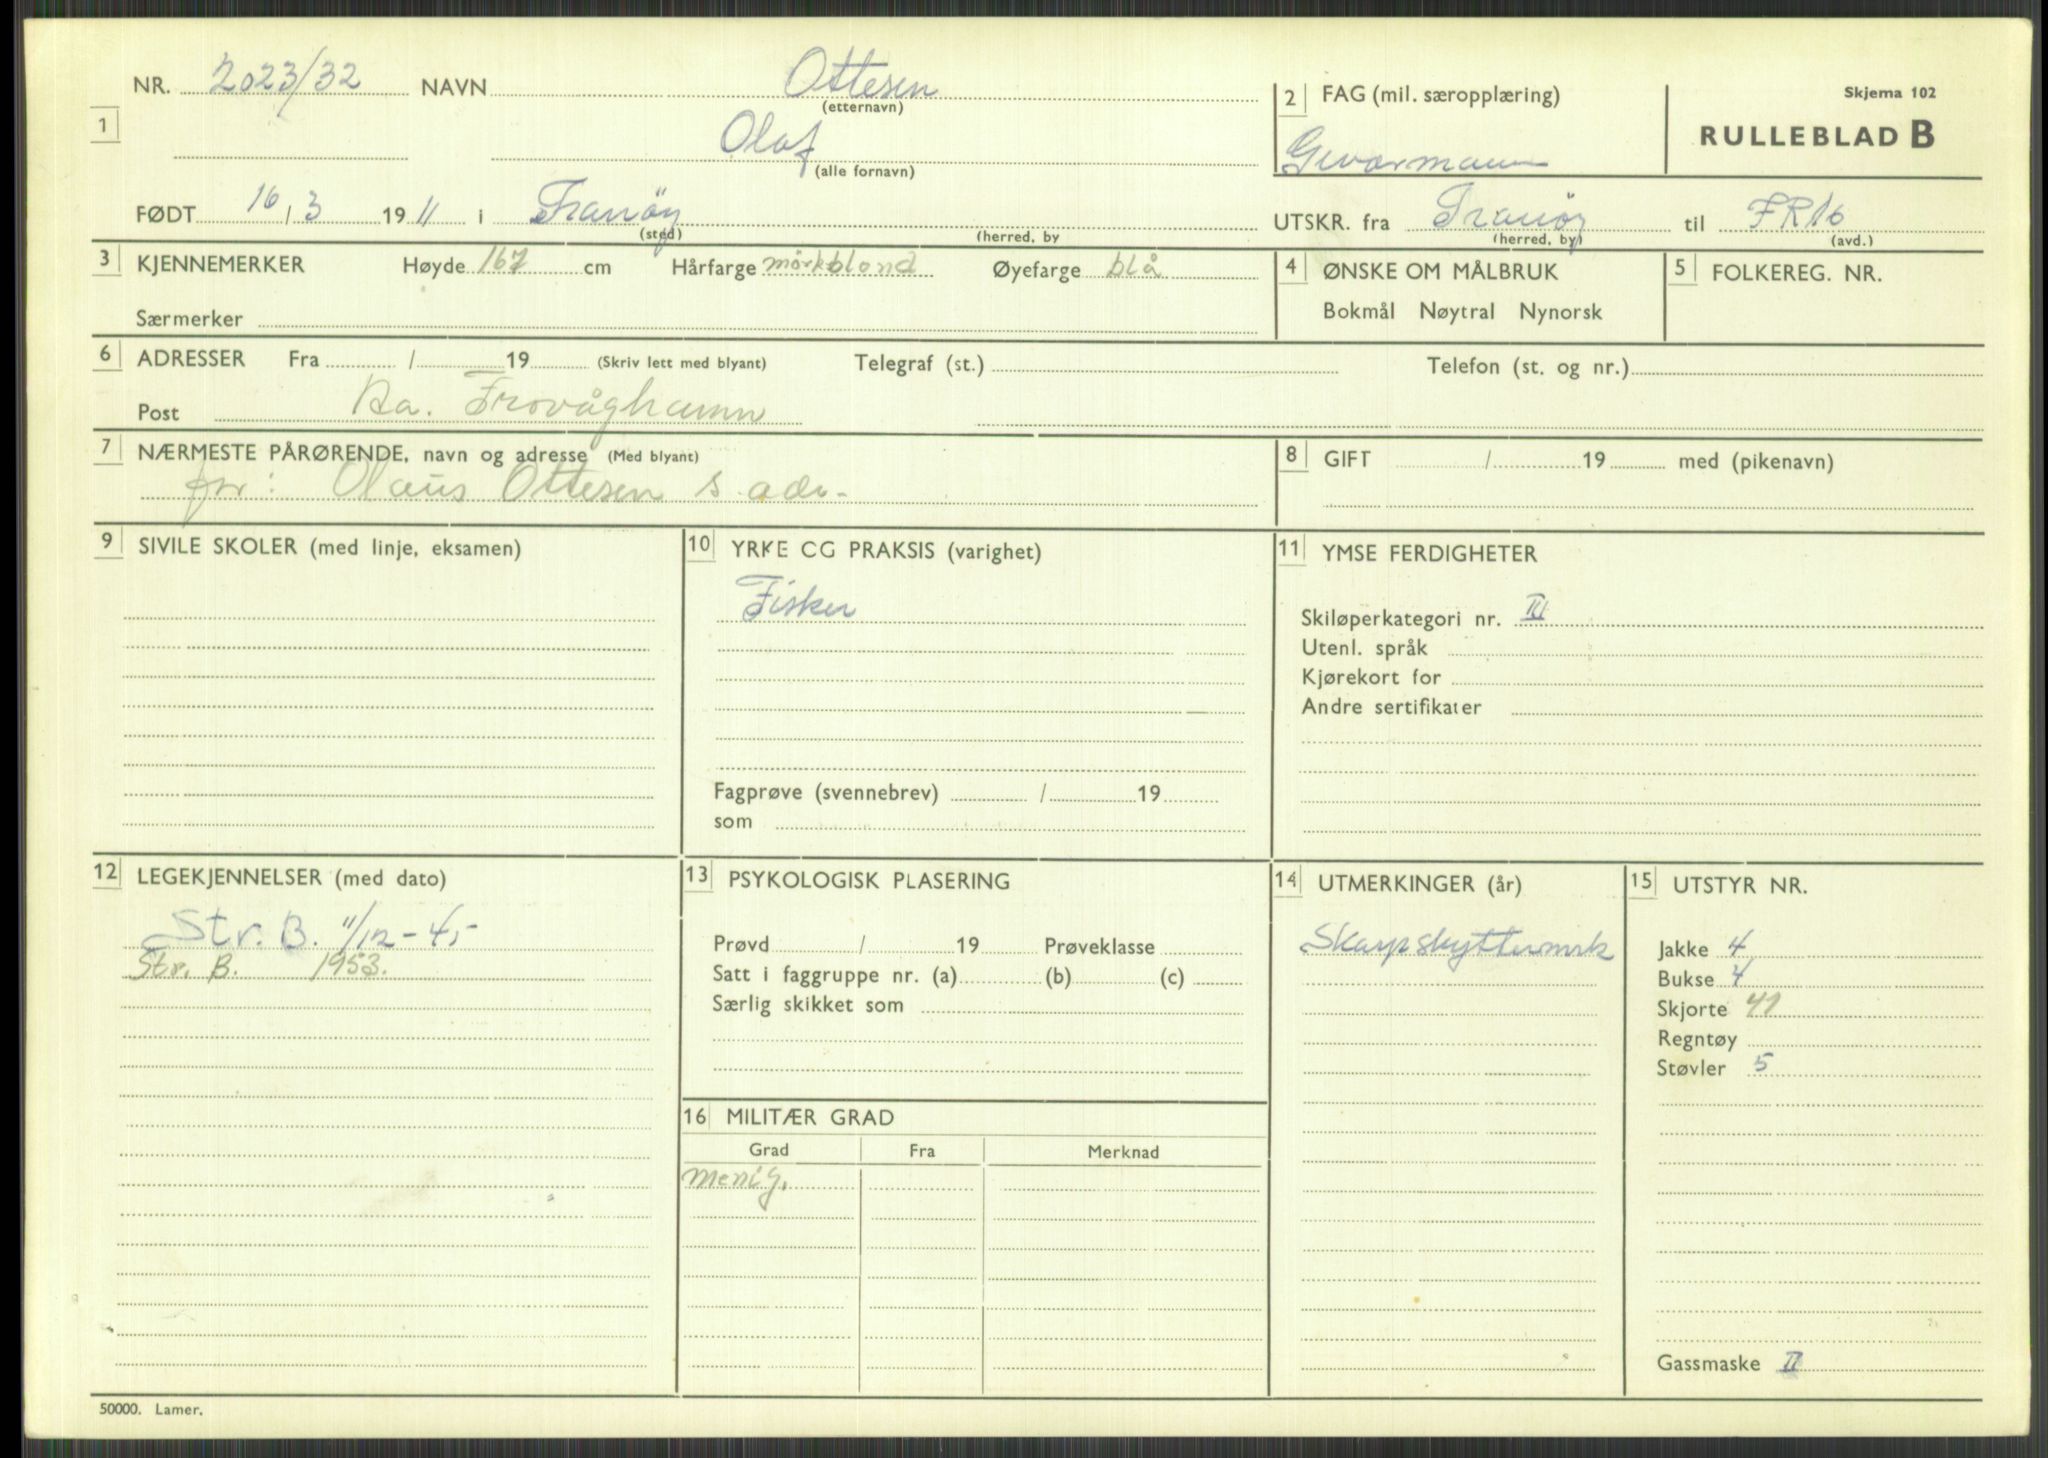 NR. 2023/32 NAVN Ottesen
(etternavn)
1
Olaf
(alle fornavn)
2 FAG (mil. særopplæring)
Geværmann
Skjema 102
RULLEBLAD B
FØDT 16/3 1911 i Tranöy
(sted) (herred, by
UTSKR. fra Tranöy til FR16
(herred, by) (avd.)
3 KJENNEMERKER Høyde 167 cm Hårfarge mörkblond Øyefarge blå
Særmerker
4 ØNSKE OM MÅLBRUK
Bokmål Nøytral Nynorsk
5 FOLKEREG. NR.
6 ADRESSER Fra / 19 (Skriv lett med blyant) Telegraf (st.) Telefon (st. og nr.)
Post Aa. Frovåghamn
7 NÆRMESTE PÅRØRENDE, navn og adresse (Med blyant)
far: Olaus Ottesen s. adr.
8 GIFT / 19 med (pikenavn)
9 SIVILE SKOLER (med linje, eksamen)
10 YRKE CG PRAKSIS (varighet)
Fisker
Fagprøve (svennebrev) / 19
som
11 YMSE FERDIGHETER
Skiløperkategori nr. III
Utenl. språk
Kjørekort for
Andre sertifikater
12 LEGEKJENNELSER (med dato)
Str. B. 11/12-4,-
Str. B. 1953.
13 PSYKOLOGISK PLASERING
Prøvd / 19 Prøveklasse
Satt i faggruppe nr. (a) (b) (c)
Særlig skikket som
14 UTMERKINGER (år)
Skarpskyttermrk
15 UTSTYR NR.
Jakke 4
Bukse 4
Skjorte 41
Regntøy
Støvler 5
Gassmaske II
16 MILITÆR GRAD
Grad Fra Merknad
menig.
50000. Lamer.